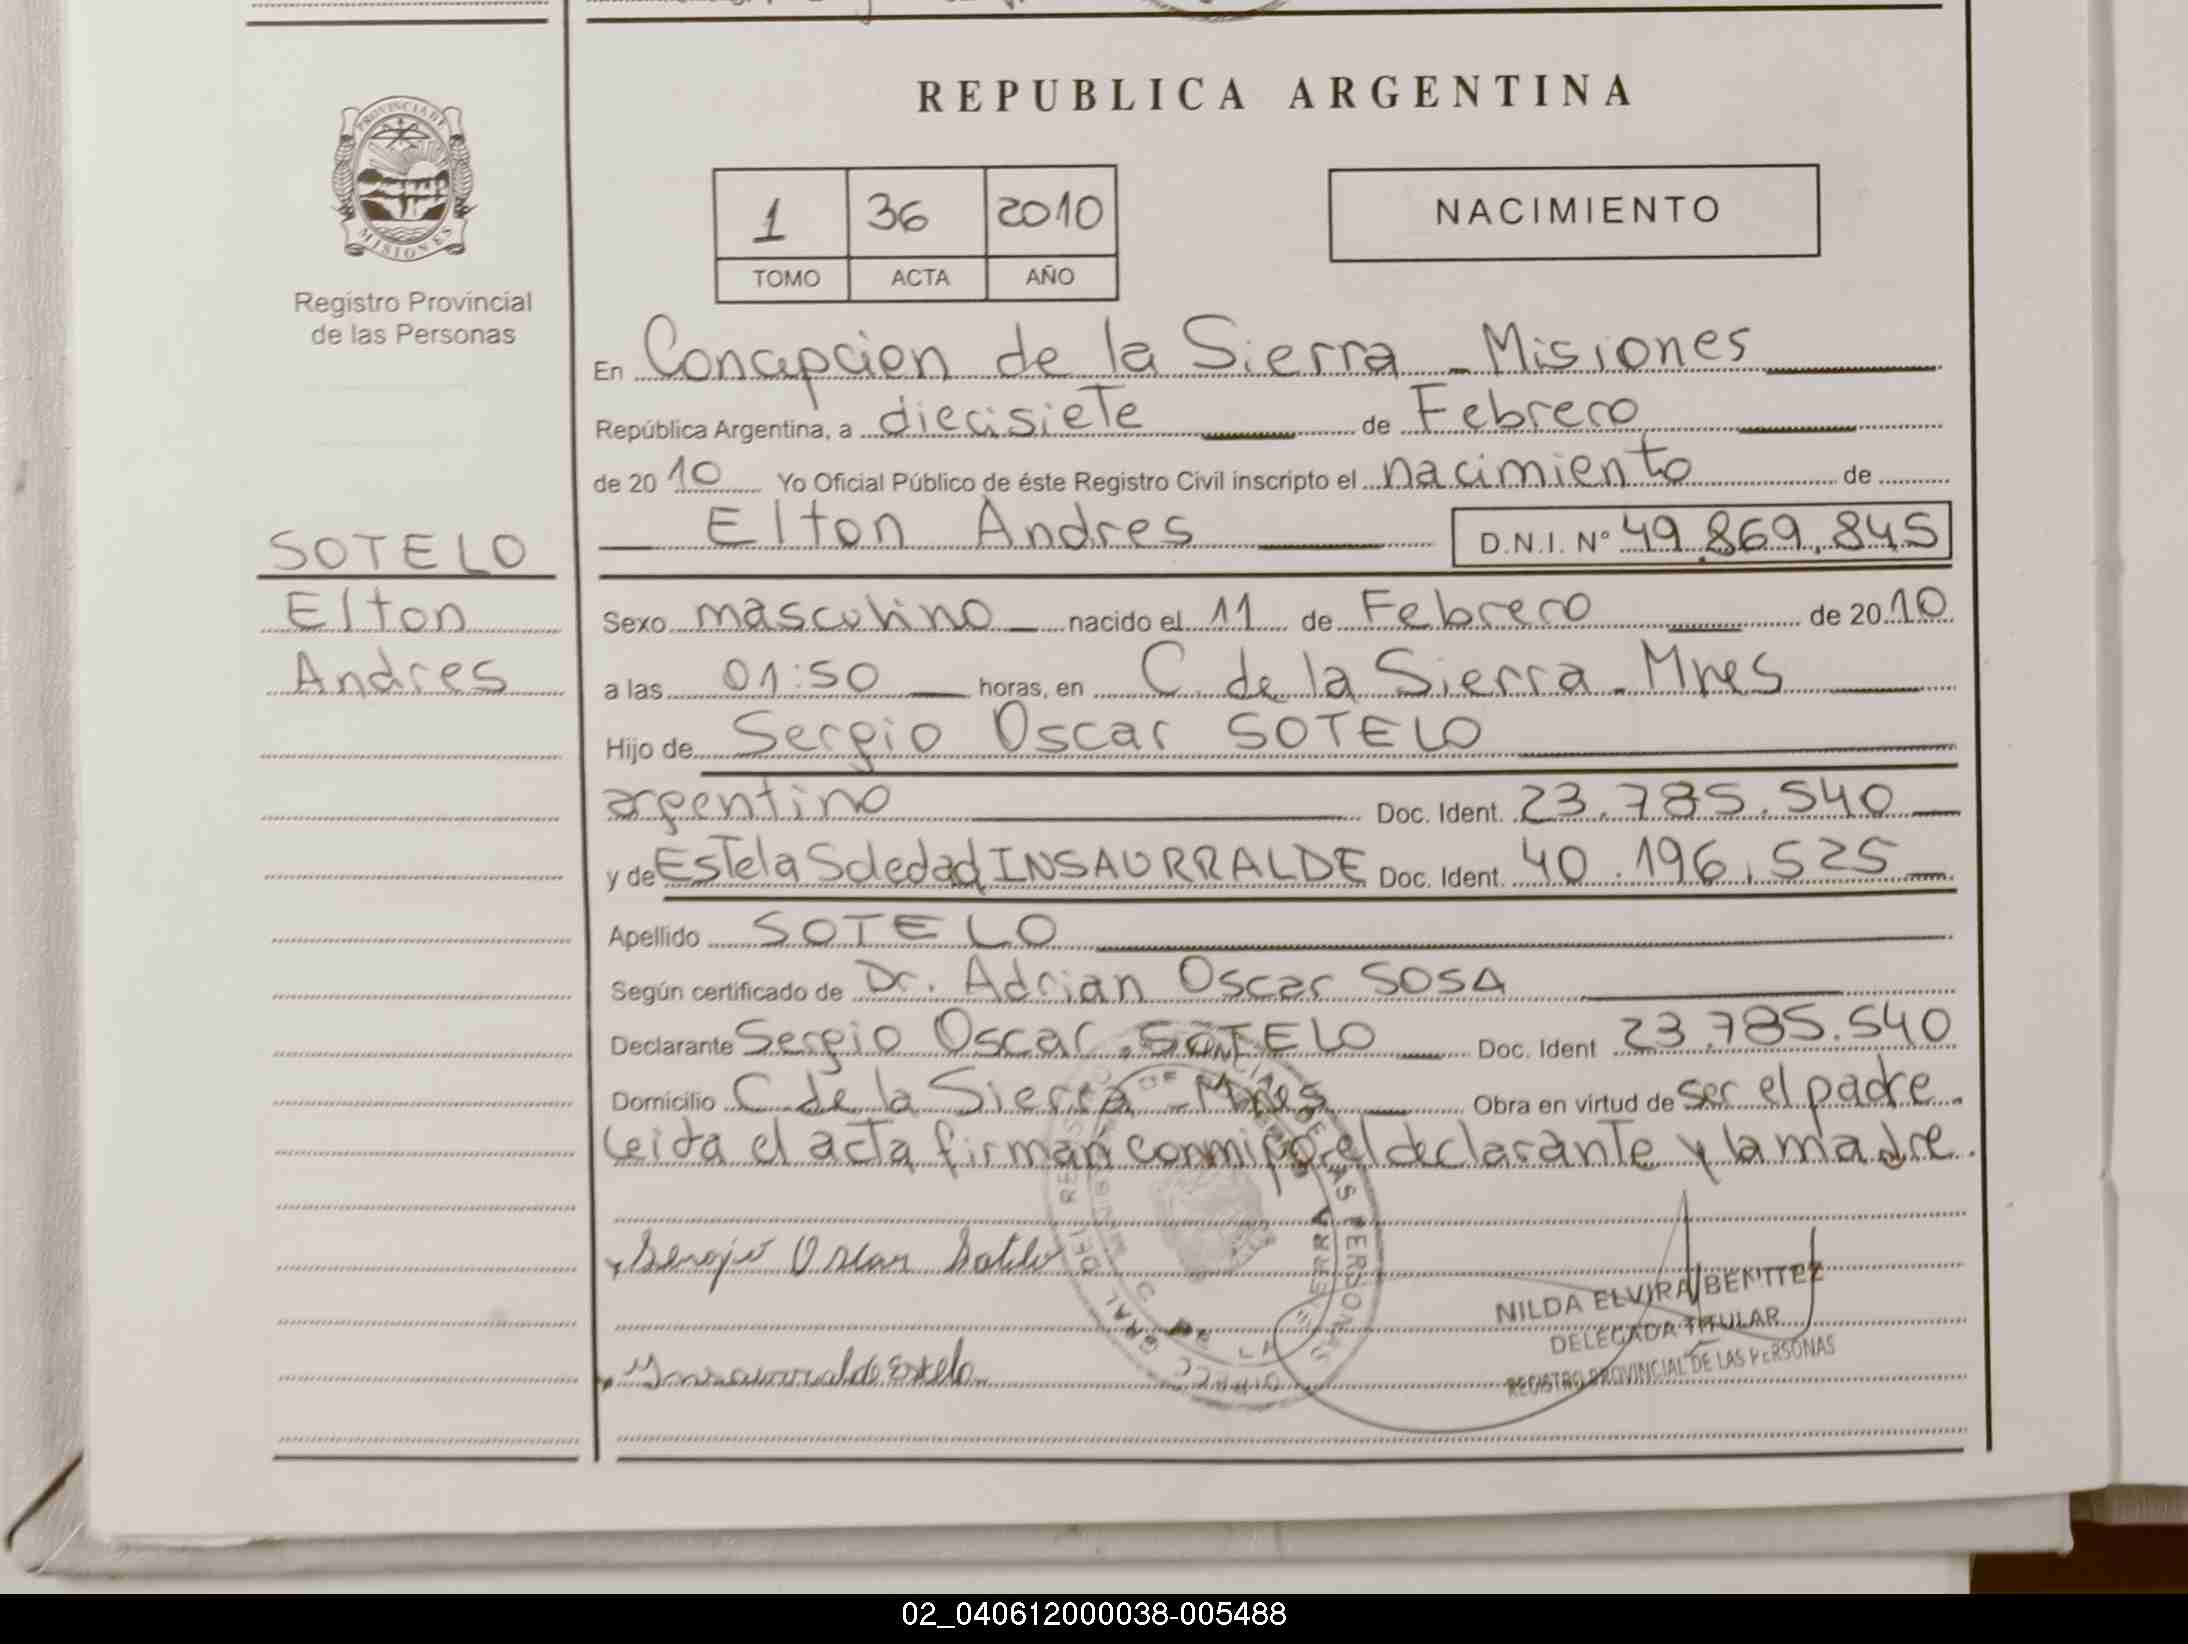 REPUBLICA ARGENTINA
PROVINCIA DE
MISIONES
Registro Provincial
de las Personas
1 36 2010
TOMO ACTA AÑO
NACIMIENTO
En Concepcion de la Sierra - Misiones
República Argentina, a diecisiete de Febrero
de 2010 Yo Oficial Público de éste Registro Civil inscripto el nacimiento de
Elton Andres D.N.I. Nº 49.869.845
SOTELO
Elton
Andres
Sexo masculino nacido el 11 de Febrero de 2010
a las 01:50 horas, en C. de la Sierra - Mnes
Hijo de Sergio Oscar SOTELO
argentino Doc. Ident. 23.785.540
y de Estela Soledad INSAURRALDE Doc. Ident. 40.196.525
Apellido SOTELO
Según certificado de Dr. Adrian Oscar SOSA
Declarante Sergio Oscar SOTELO Doc. Ident 23.785.540
Domicilio C de la Sierra - Mnes Obra en virtud de ser el padre.
Leida el acta firman conmigo el declarante y la madre.
Sergio Oscar Sotelo
NILDA ELVIRA BENITEZ
DELEGADA TITULAR
REGISTRO PROVINCIAL DE LAS PERSONAS
Insaurralde Estela
02_040612000038-005488